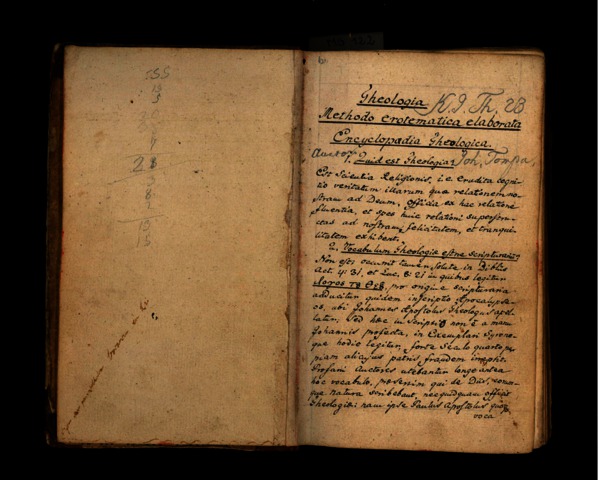 155
19
5
2 8
8
15
15
6
Theologia K. I. Th. 23.
Methodo erotematica elaborata
Encyclopædia Theologica.
Auctor Joh. Tompa.
1. Quid est Theologia?
Est Scientia Religionis, i.e. erudita cogni-
tio veritatum illarum quæ relationem no-
stram ad Deum, officia ex hac relatione
fluentia, et spes huic relationi superstru-
ctas ad nostram felicitatem, et tranqui-
litatem exhibent.
2. Vocabulum Theologia estne scripturarium?
Non est, occurrit tamen solute in Bibliis
Act. 4: 31. et Luc. 8: 21 in quibus legitur
Λογος τȣ Θεȣ, pro origine scripturaria
adducitur quidem inscriptio Apocalypse-
os, ubi Johannes Apostolus Theologus apel-
latur, sed hæc inscriptio non e a manu
Johannis profecta, in Exemplari Syro
que hodie legitur, forte Seculo quarto per
piam alicujus patris fraudem irrepsit.
Profani Auctores utebantur longe antea
hoc vocabulo, præsertim qui de Diis, eorum-
que natura scribebant, nec quidquam officit
Theologiæ: nam ipse Paulus Apostolus quoq
voca